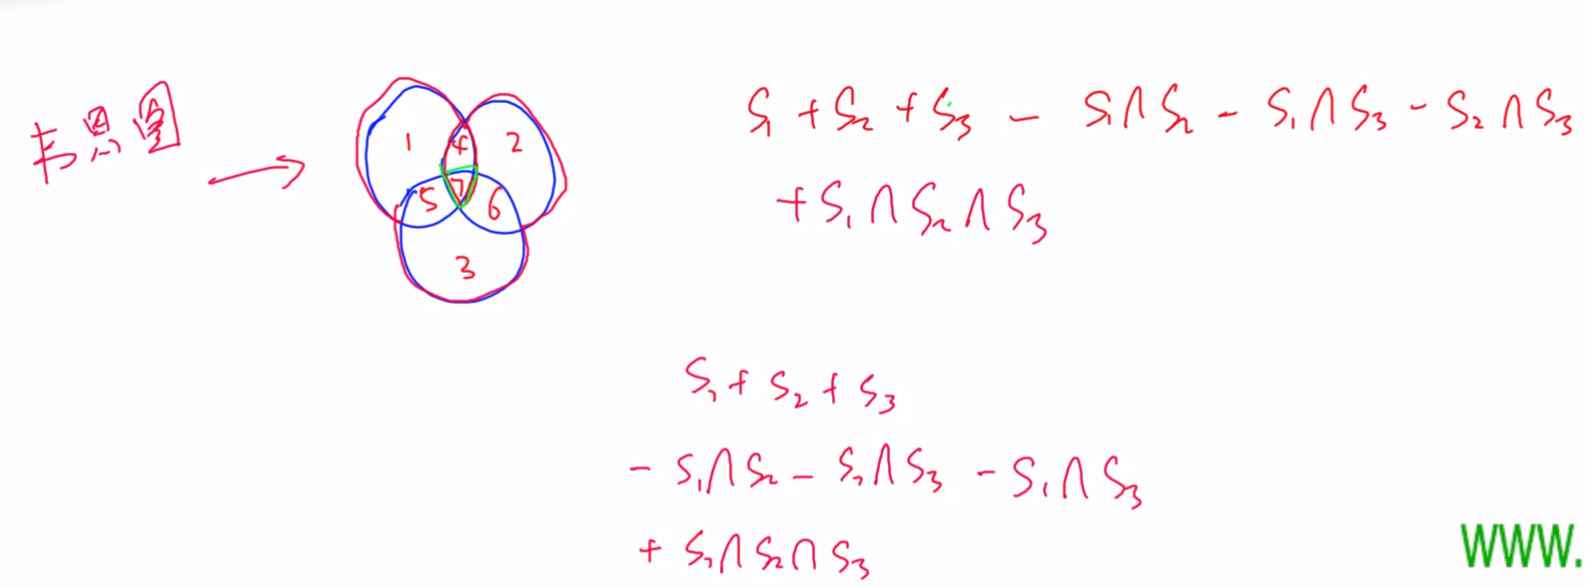 韦恩图
1 4 2
5 7 6
3
S₁ + S₂ + S₃ - S₁∩S₂ - S₁∩S₃ - S₂∩S₃
+ S₁∩S₂∩S₃
S₁ + S₂ + S₃
- S₁∩S₂ - S₂∩S₃ - S₁∩S₃
+ S₁∩S₂∩S₃
WWW.